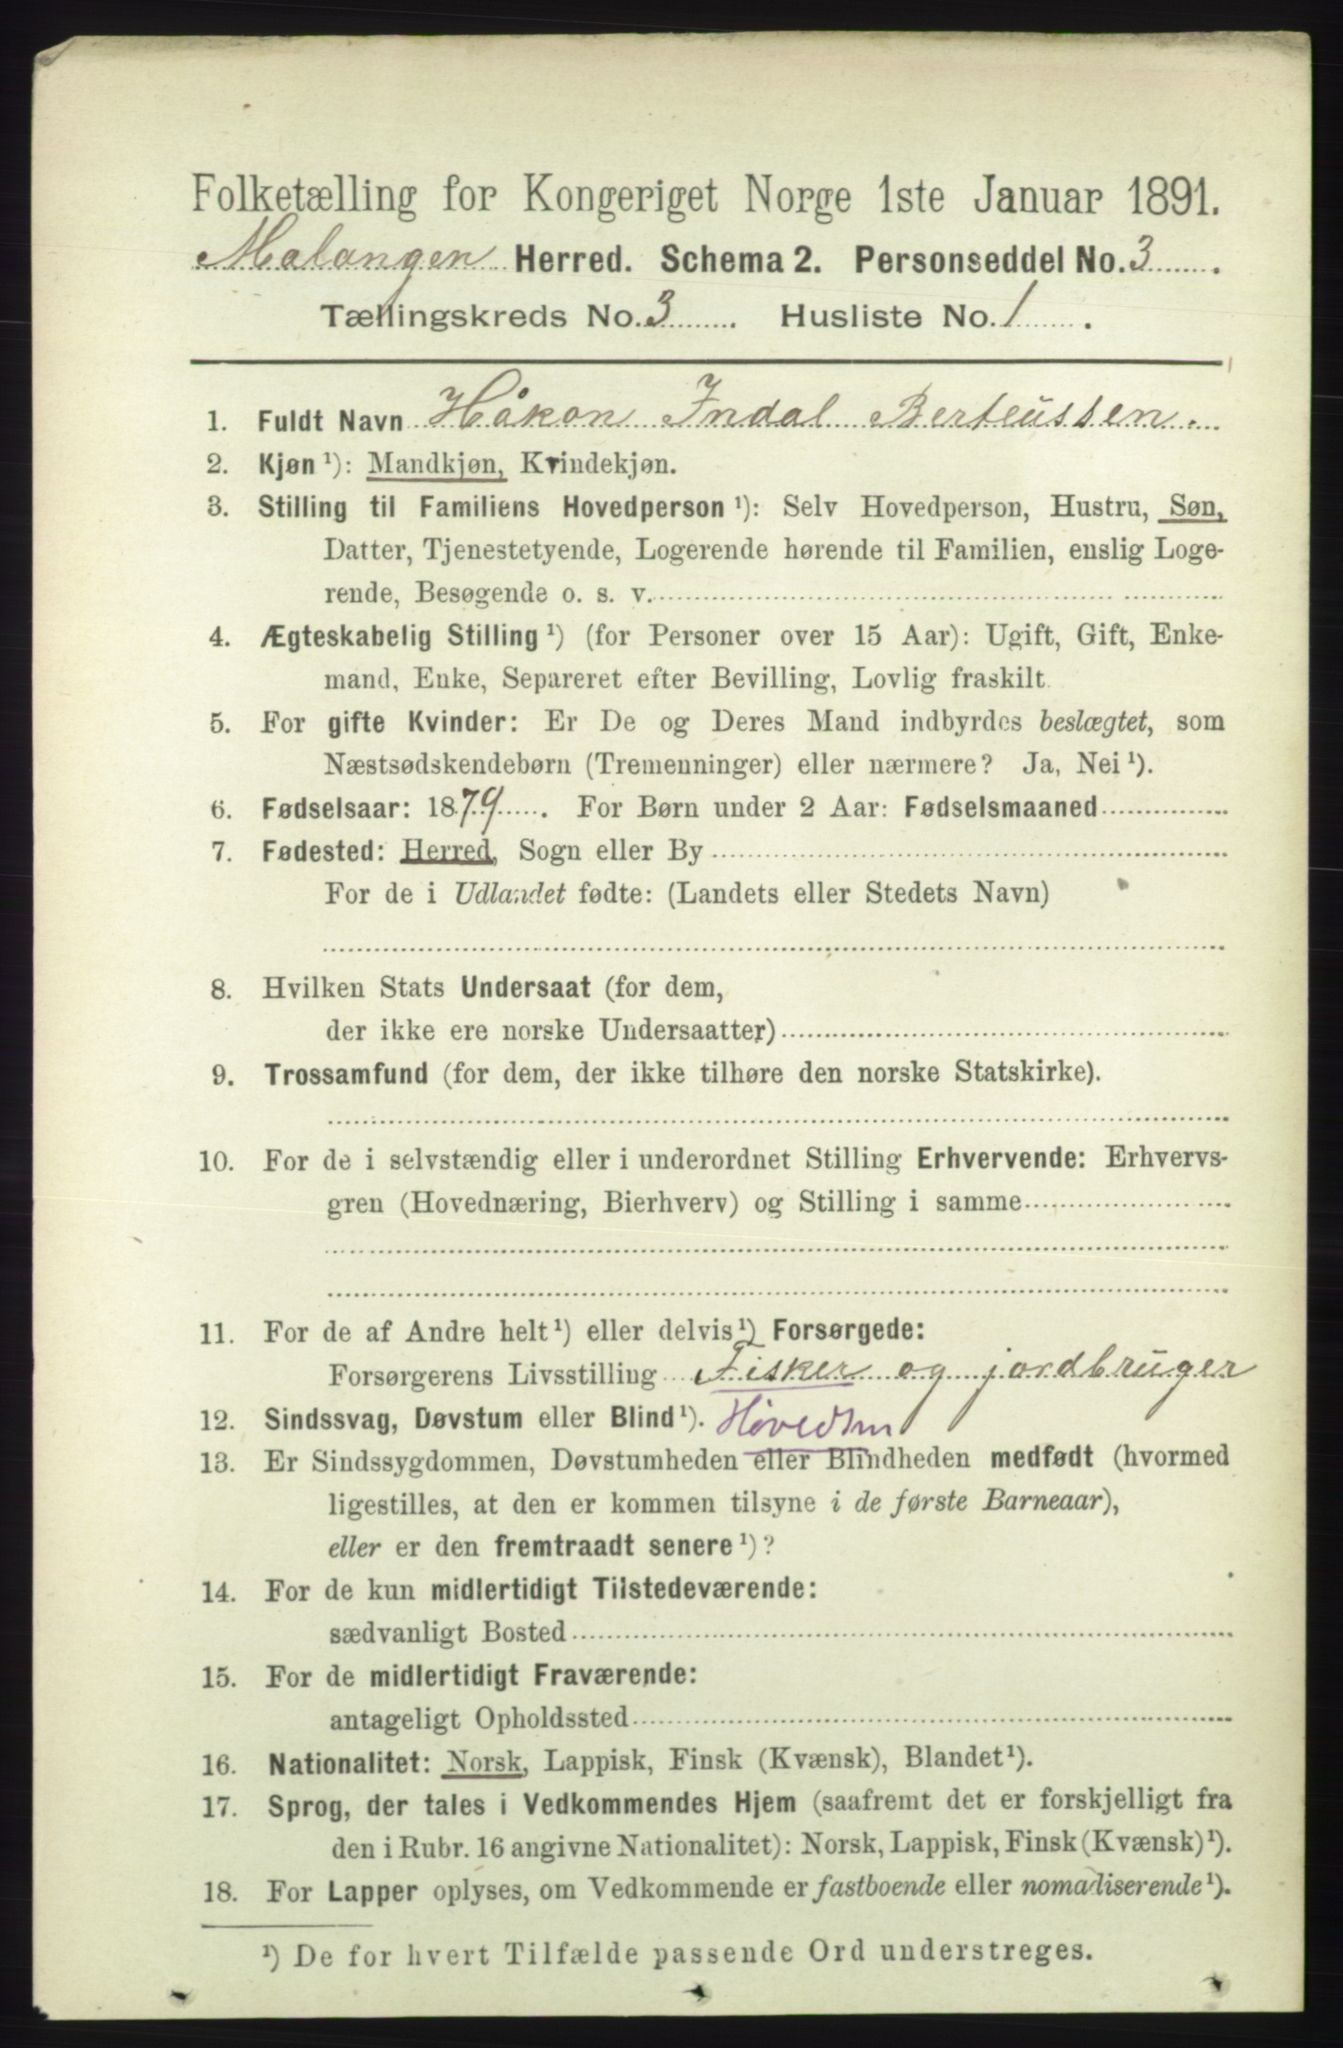 Folketælling for Kongeriget Norge 1ste Januar 1891.
Malangen Herred. Schema 2. Personseddel No. 3
Tællingskreds No. 3 Husliste No. 1
1. Fuldt Navn Håkon Indal Berteussen.
2. Kjøn ¹): Mandkjøn, Kvindekjøn.
3. Stilling til Familiens Hovedperson ¹): Selv Hovedperson, Hustru, Søn,
Datter, Tjenestetyende, Logerende hørende til Familien, enslig Loge-
rende, Besøgende o. s. v.
4. Ægteskabelig Stilling ¹) (for Personer over 15 Aar): Ugift, Gift, Enke-
mand, Enke, Separeret efter Bevilling, Lovlig fraskilt.
5. For gifte Kvinder: Er De og Deres Mand indbyrdes beslægtet, som
Næstsødskendebørn (Tremenninger) eller nærmere? Ja, Nei ¹).
6. Fødselsaar: 1879. For Børn under 2 Aar: Fødselsmaaned
7. Fødested: Herred, Sogn eller By
For de i Udlandet fødte: (Landets eller Stedets Navn)
8. Hvilken Stats Undersaat (for dem,
der ikke ere norske Undersaatter)
9. Trossamfund (for dem, der ikke tilhøre den norske Statskirke).
10. For de i selvstændig eller i underordnet Stilling Erhvervende: Erhvervs-
gren (Hovednæring, Bierhverv) og Stilling i samme
11. For de af Andre helt ¹) eller delvis ¹) Forsørgede:
Forsørgerens Livsstilling Fisker og jordbruger
12. Sindssvag, Døvstum eller Blind ¹).
13. Er Sindssygdommen, Døvstumheden eller Blindheden medfødt (hvormed
ligestilles, at den er kommen tilsyne i de første Barneaar),
eller er den fremtraadt senere ¹)?
14. For de kun midlertidigt Tilstedeværende:
sædvanligt Bosted
15. For de midlertidigt Fraværende:
antageligt Opholdssted
16. Nationalitet: Norsk, Lappisk, Finsk (Kvænsk), Blandet ¹).
17. Sprog, der tales i Vedkommendes Hjem (saafremt det er forskjelligt fra
den i Rubr. 16 angivne Nationalitet): Norsk, Lappisk, Finsk (Kvænsk) ¹).
18. For Lapper oplyses, om Vedkommende er fastboende eller nomadiserende ¹).
¹) De for hvert Tilfælde passende Ord understreges.